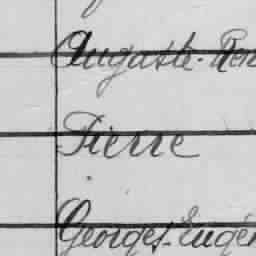 Auguste-Ren
Pierre
Georges-Eugèn